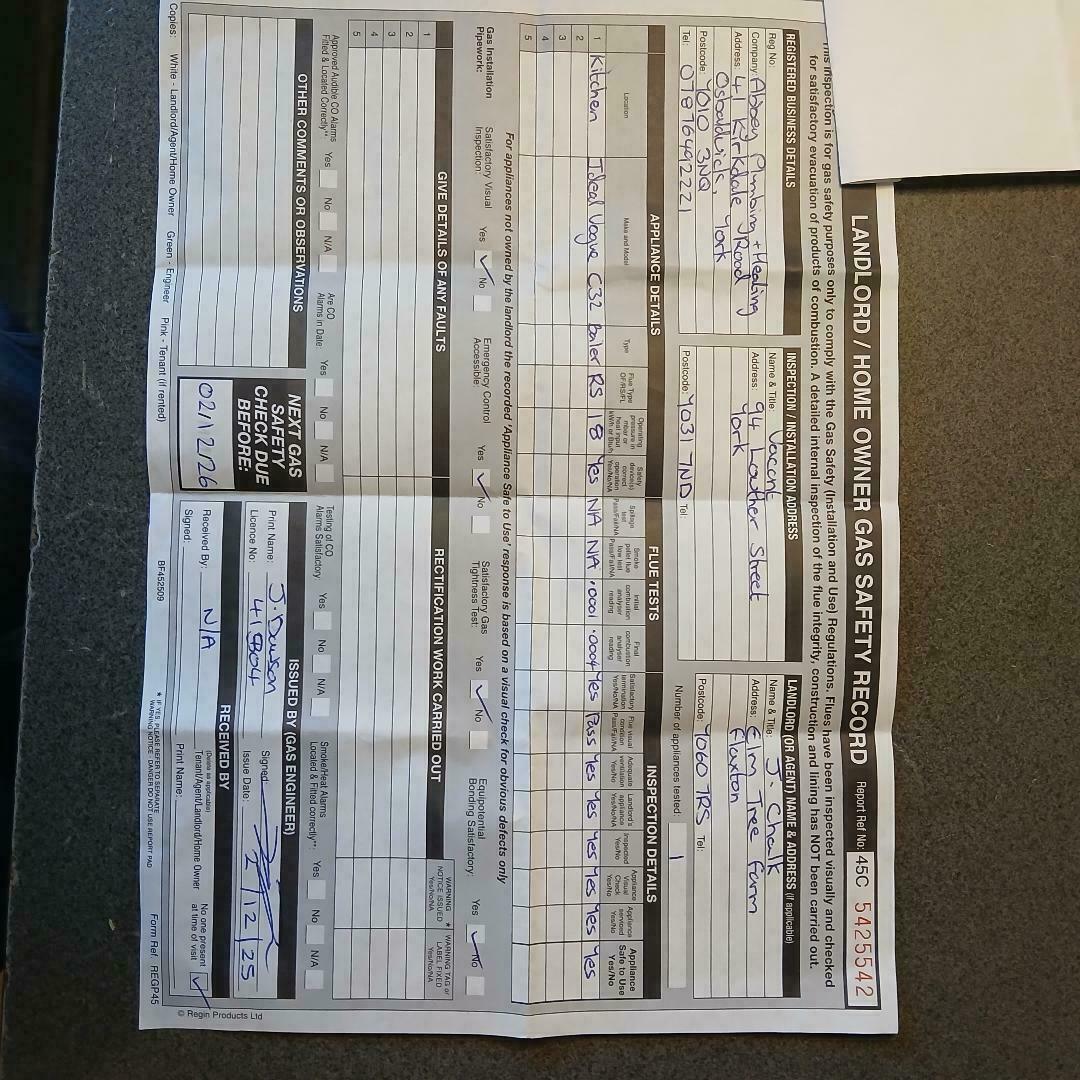 LANDLORD / HOME OWNER GAS SAFETY RECORD Report Ref No: 45C 5425542
This inspection is for gas safety purposes only to comply with the Gas Safety (Installation and Use) Regulations. Flues have been inspected visually and checked
for satisfactory evacuation of products of combustion. A detailed internal inspection of the flue integrity, construction and lining has NOT been carried out.
REGISTERED BUSINESS DETAILS
Reg No:
Company: Abbey Plumbing + Heating
Address: 41 Kirkdale Road
Osbaldwick, York
Postcode: YO10 3NQ
Tel: 07876492221
INSPECTION / INSTALLATION ADDRESS
Name & Title: Vacant
Address: 94 Lowther Street
York
Postcode: YO31 7ND Tel:
LANDLORD (OR AGENT) NAME & ADDRESS (if applicable)
Name & Title: J. Chalk
Address: Elm Tree Farm
Flaxton
Postcode: YO60 7RS Tel:
Number of appliances tested: 1
APPLIANCE DETAILS FLUE TESTS INSPECTION DETAILS
Location
Make and Model
Type
Flue Type OF/RS/FL
Operating pressure in mbar or heat input kW/h or Btu/h
Safety device(s) correct operation Yes/No/NA
Spillage test Pass/Fail/NA
Smoke pellet flue flow test Pass/Fail/NA
Initial combustion analyser reading
Final combustion analyser reading
Satisfactory termination Yes/No/NA
Flue visual condition Pass/Fail/NA
Adequate ventilation Yes/No
Landlord's appliance Yes/No/NA
Inspected Yes/No
Appliance Visual Check Yes/No
Appliance serviced Yes/No
Appliance Safe to Use Yes/No
1 Kitchen Ideal Vogue C32 Boiler RS 18 Yes NA NA .0001 .0004 Yes Pass Yes Yes Yes Yes Yes Yes
2
3
4
5
For appliances not owned by the landlord the recorded 'Appliance Safe to Use' response is based on a visual check for obvious defects only
Gas Installation Pipework: Satisfactory Visual Inspection: Yes ✓ No Emergency Control Accessible: Yes ✓ No Satisfactory Gas Tightness Test: Yes ✓ No Equipotential Bonding Satisfactory: Yes ✓ No
GIVE DETAILS OF ANY FAULTS RECTIFICATION WORK CARRIED OUT WARNING * NOTICE ISSUED Yes/No/NA WARNING TAG or LABEL FIXED Yes/No/NA
1
2
3
4
5
Approved Audible CO Alarms Fitted & Located Correctly** Yes No N/A Are CO Alarms in Date Yes No N/A Testing of CO Alarms Satisfactory: Yes No N/A Smoke/Heat Alarms Located & Fitted correctly**: Yes No N/A
OTHER COMMENTS OR OBSERVATIONS
NEXT GAS SAFETY CHECK DUE BEFORE:
02/12/26
ISSUED BY (GAS ENGINEER)
Print Name: J. Dawson Signed:
Licence No: Issue Date: 2/12/25
RECEIVED BY
Received By: N/A (Delete as applicable) Tenant/Agent/Landlord/Home Owner No one present at time of visit ✓
Signed: Print Name:
* IF YES, PLEASE REFER TO SEPARATE
WARNING NOTICE - DANGER DO NOT USE REPORT PAD
Copies: White - Landlord/Agent/Home Owner Green - Engineer Pink - Tenant (if rented) BF452509 Form Ref: REGP45
© Regin Products Ltd